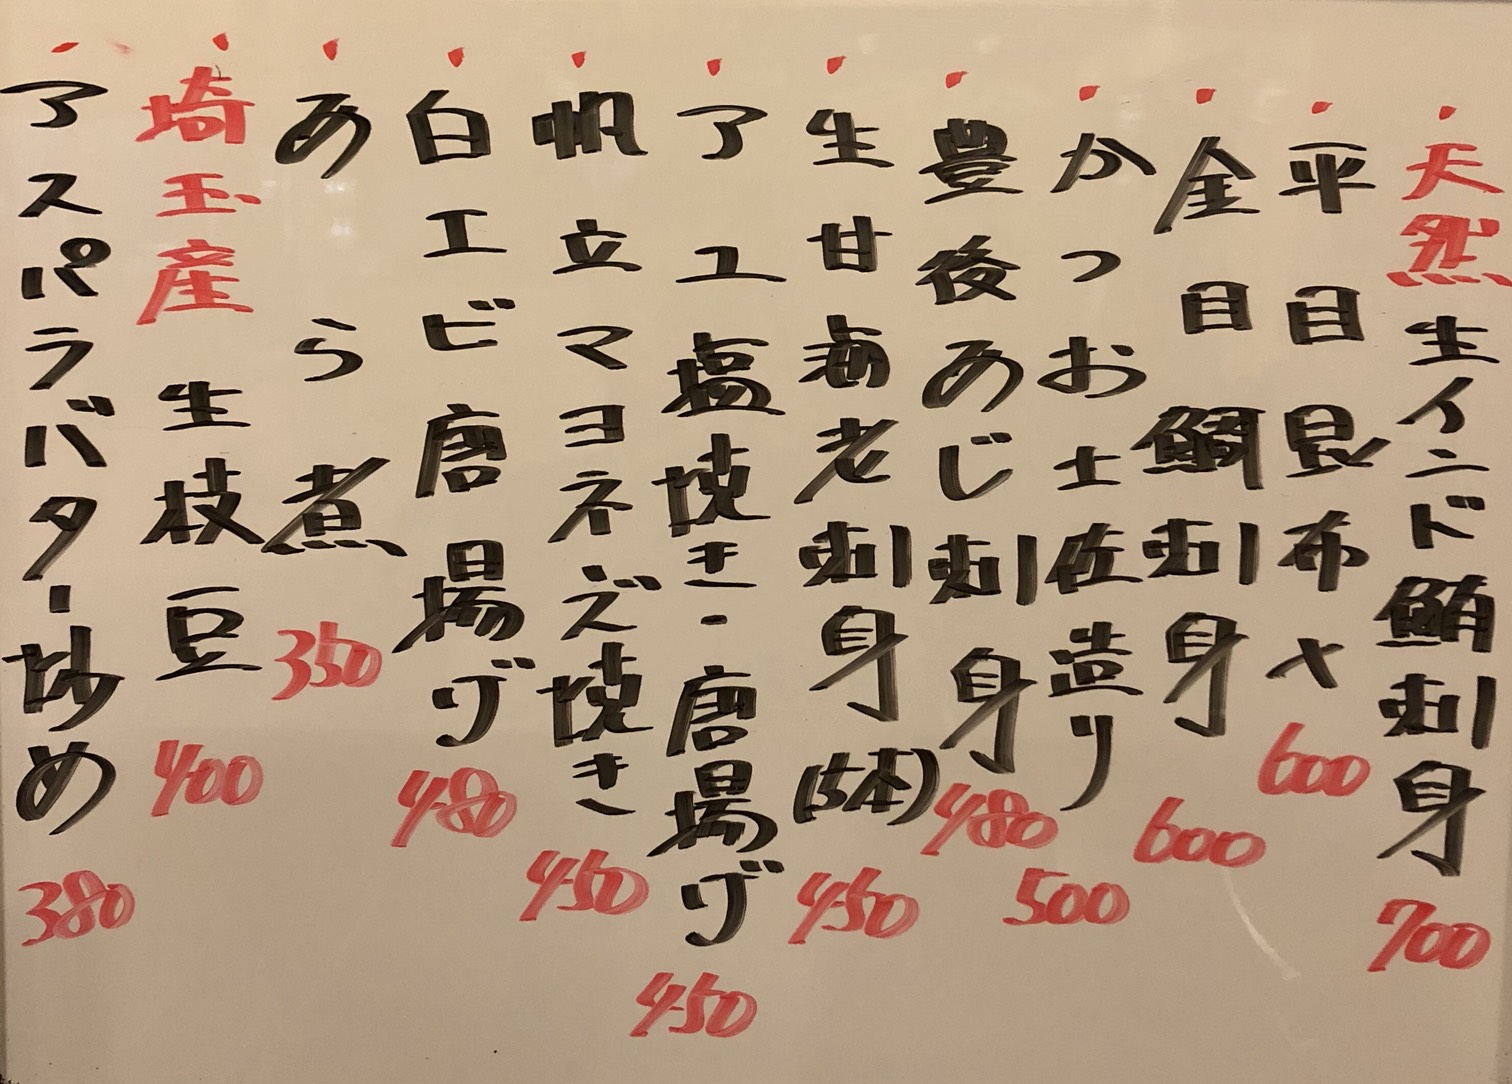 天然生インド鮪刺身 700
平目昆布〆 600
金目鯛刺身 600
かつお土佐造り 500
豊後あじ刺身 480
生甘海老刺身(5本) 450
アユ塩焼き・唐揚げ 450
帆立マヨネーズ焼き 450
白エビ唐揚げ 480
あら煮 350
埼玉産生枝豆 400
アスパラバター炒め 380